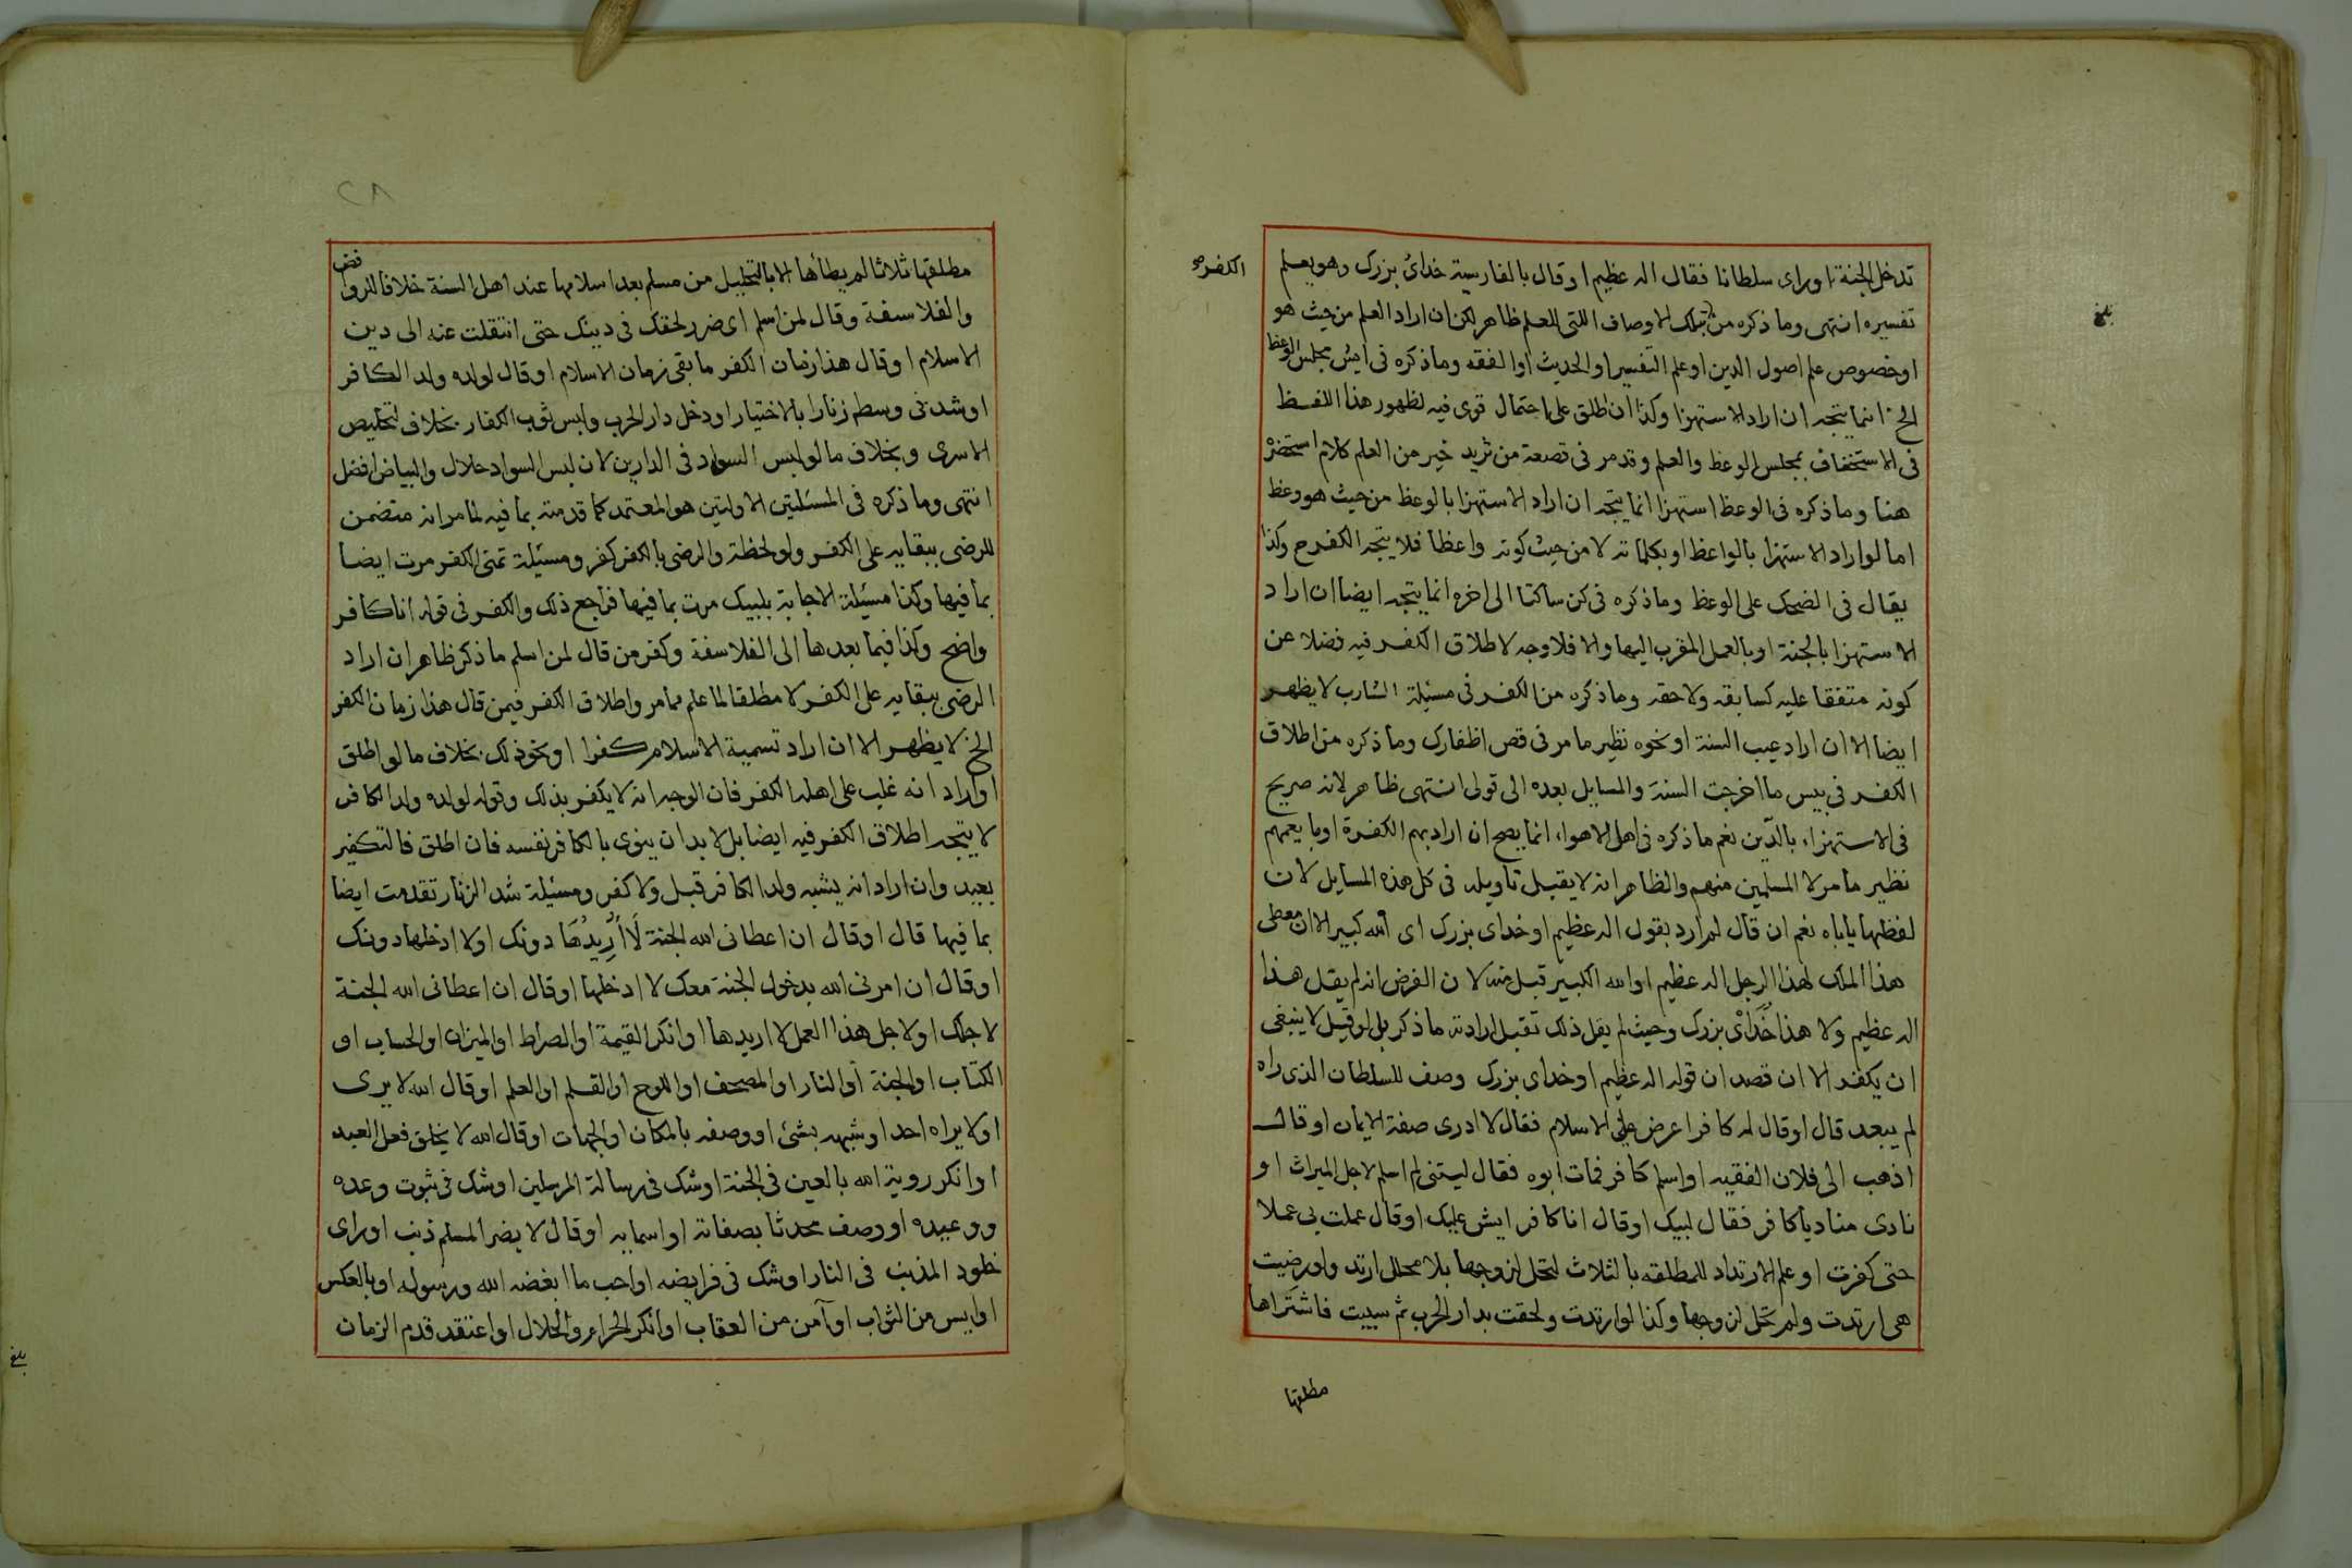 تدخل الجنة او راى سلطانا فقال اله عظيم او قال بالفارسية خداى بزرك وهو يعلم
الكفر صح
تفسيره انتهى وما ذكره من تلك الاوصاف اللتى للعلم ظاهر لكن ان اراد العلم من حيث هو
بلغ
او خصوص علم اصول الدين او علم التفسير او الحديث او الفقه وما ذكره فى ايش مجلس الوعظ
الخ انما يتجه ان اراد الاستهزا وكذا ان اطلق على احتمال قوى فيه لظهور هذا اللفظ
فى الاستخفاف بمجلس الوعظ والعلم وقد مر فى قصعة من ثريد خير من العلم كلام استحضره
هنا وما ذكره فى الوعظ استهزا انما يتجه ان اراد الاستهزا بالوعظ من حيث هو وعظ
اما لو اراد الاستهزا بالواعظ او بكلماته لا من حيث كونه واعظا فلا يتجه الكفر ح وكذا
يقال فى الضحك على الوعظ وما ذكره فى كن ساكتا الى اخره انما يتجه ايضا ان اراد
الاستهزا بالجنة او بالعمل المقرب اليها والا فلا وجه لاطلاق الكفر فيه فضلا عن
كونه متفقا عليه كسابقه ولاحقه وما ذكره من الكفر فى مسئلة الشارب لا يظهر
ايضا الا ان اراد عيب السنة او نحوه نظير ما مر فى قص اظفارك وما ذكره من اطلاق
الكفر فى بيس ما اخرجت السنة والمسايل بعده الى قولى انتهى ظاهر لانه صريح
فى الاستهزاء بالدين نعم ما ذكره فى اهل الاهواء انما يصح ان اراد بهم الكفرة او ما يعمهم
نظير ما مر لا المسلمين منهم والظاهر انه لا يقبل تاويله فى كل هذه المسايل لان
لفظها ياباه نعم ان قال لم ارد بقول اله عظيم او خداى بزرك اى الله كبير الا ان معطى
هذا الملك لهذا الرجل اله عظيم او الله الكبير قبل منه لان الفرض انه لم يقل هذا
اله عظيم ولا هذا خداى بزرك وحيث لم يقل ذلك تقبل ارادته ما ذكر بل لو قيل لا ينبغى
ان يكفر الا ان قصد ان قوله اله عظيم او خداى بزرك وصف للسلطان الذى راه
لم يبعد قال او قال له كافر اعرض على الاسلام فقال لا ادرى صفة الايمان او قال
اذهب الى فلان الفقيه او اسلم كافر فمات ابوه فقال ليتنى لم اسلم لاجل الميراث او
نادى مناد يا كافر فقال لبيك او قال انا كافر ايش عليك او قال عملت بى عملا
حتى كفرت او علم الارتداد للمطلقه بالثلاث لتحل لزوجها بلا محلل ارتد ولو رضيت
هى ارتدت ولم تحل لزوجها وكذا لو ارتدت ولحقت بدار الحرب ثم سبيت فاشتراها
مطلقها
مطلقها ثلاثا لم يطأها الا بالتحليل من مسلم بعد اسلامها عند اهل السنة خلافا للروافض
والفلاسفة وقال لمن اسلم اى ضرر لحقك فى دينك حتى انتقلت عنه الى دين
الاسلام او قال هذا زمان الكفر ما بقى زمان الاسلام او قال لولده ولد الكافر
او شد فى وسطه زنارا بالاختيار او دخل دار الحرب ولبس ثوب الكفار بخلاف تخليص
الاسرى وبخلاف ما لو لبس السواد فى الدارين لان لبس السواد حلال والبياض افضل
انتهى وما ذكره فى المسئلتين الاولتين هو المعتمد كما قدمته بما فيه لما مر انه متضمن
للرضى ببقايه على الكفر ولو لحظة والرضى بالكفر كفر ومسئلة تمنى الكفر مرت ايضا
بما فيها وكذا مسئلة الاجابة بلبيك مرت بما فيها فراجع ذلك والكفر فى قوله انا كافر
واضح وكذا فيما بعدها الى الفلاسفة وكفر من قال لمن اسلم ما ذكر ظاهر ان اراد
الرضى ببقايه على الكفر لا مطلقا لما علم مما مر واطلاق الكفر فيمن قال هذا زمان الكفر
الخ لا يظهر الا ان اراد تسمية الاسلام كفرا او نحو ذلك بخلاف ما لو اطلق
او اراد انه غلب على اهله الكفر فان الوجه انه لا يكفر بذلك وقوله لولده ولد الكافر
لا يتجه اطلاق الكفر فيه ايضا بل لا بد ان ينوى بالكافر نفسه فان اطلق فالتكفير
بعيد وان اراد انه يشبه ولد الكافر قبل ولا كفر ومسئلة شد الزنار تقدمت ايضا
بما فيها قال او قال ان اعطانى الله الجنة لا أريدها دونك او لا ادخلها دونك
او قال ان امرنى الله بدخول الجنة معك لا ادخلها او قال ان اعطانى الله الجنة
لاجلك او لاجل هذا العمل لا اريدها او انكر القيمة او الصراط او الميزان او الحساب او
الكتاب او الجنة او النار او المصحف او اللوح او القلم او العلم او قال الله لا يرى
او لا يراه احد او شبهه بشئ او وصفه بالمكان او الجهات او قال الله لا يخلق فعل العبد
او انكر روية الله بالعين فى الجنة او شك فى رسالة المرسلين او شك فى ثبوت وعده
ووعيده او وصف محدثا بصفاته او اسمايه او قال لا يضر المسلم ذنب او راى
خلود المذنب فى النار او شك فى فرايضه او احب ما ابغضه الله ورسوله او بالعكس
او ايس من الثواب او آمن من العقاب او انكر الحرام والحلال او اعتقد قدم الزمان
بلغ